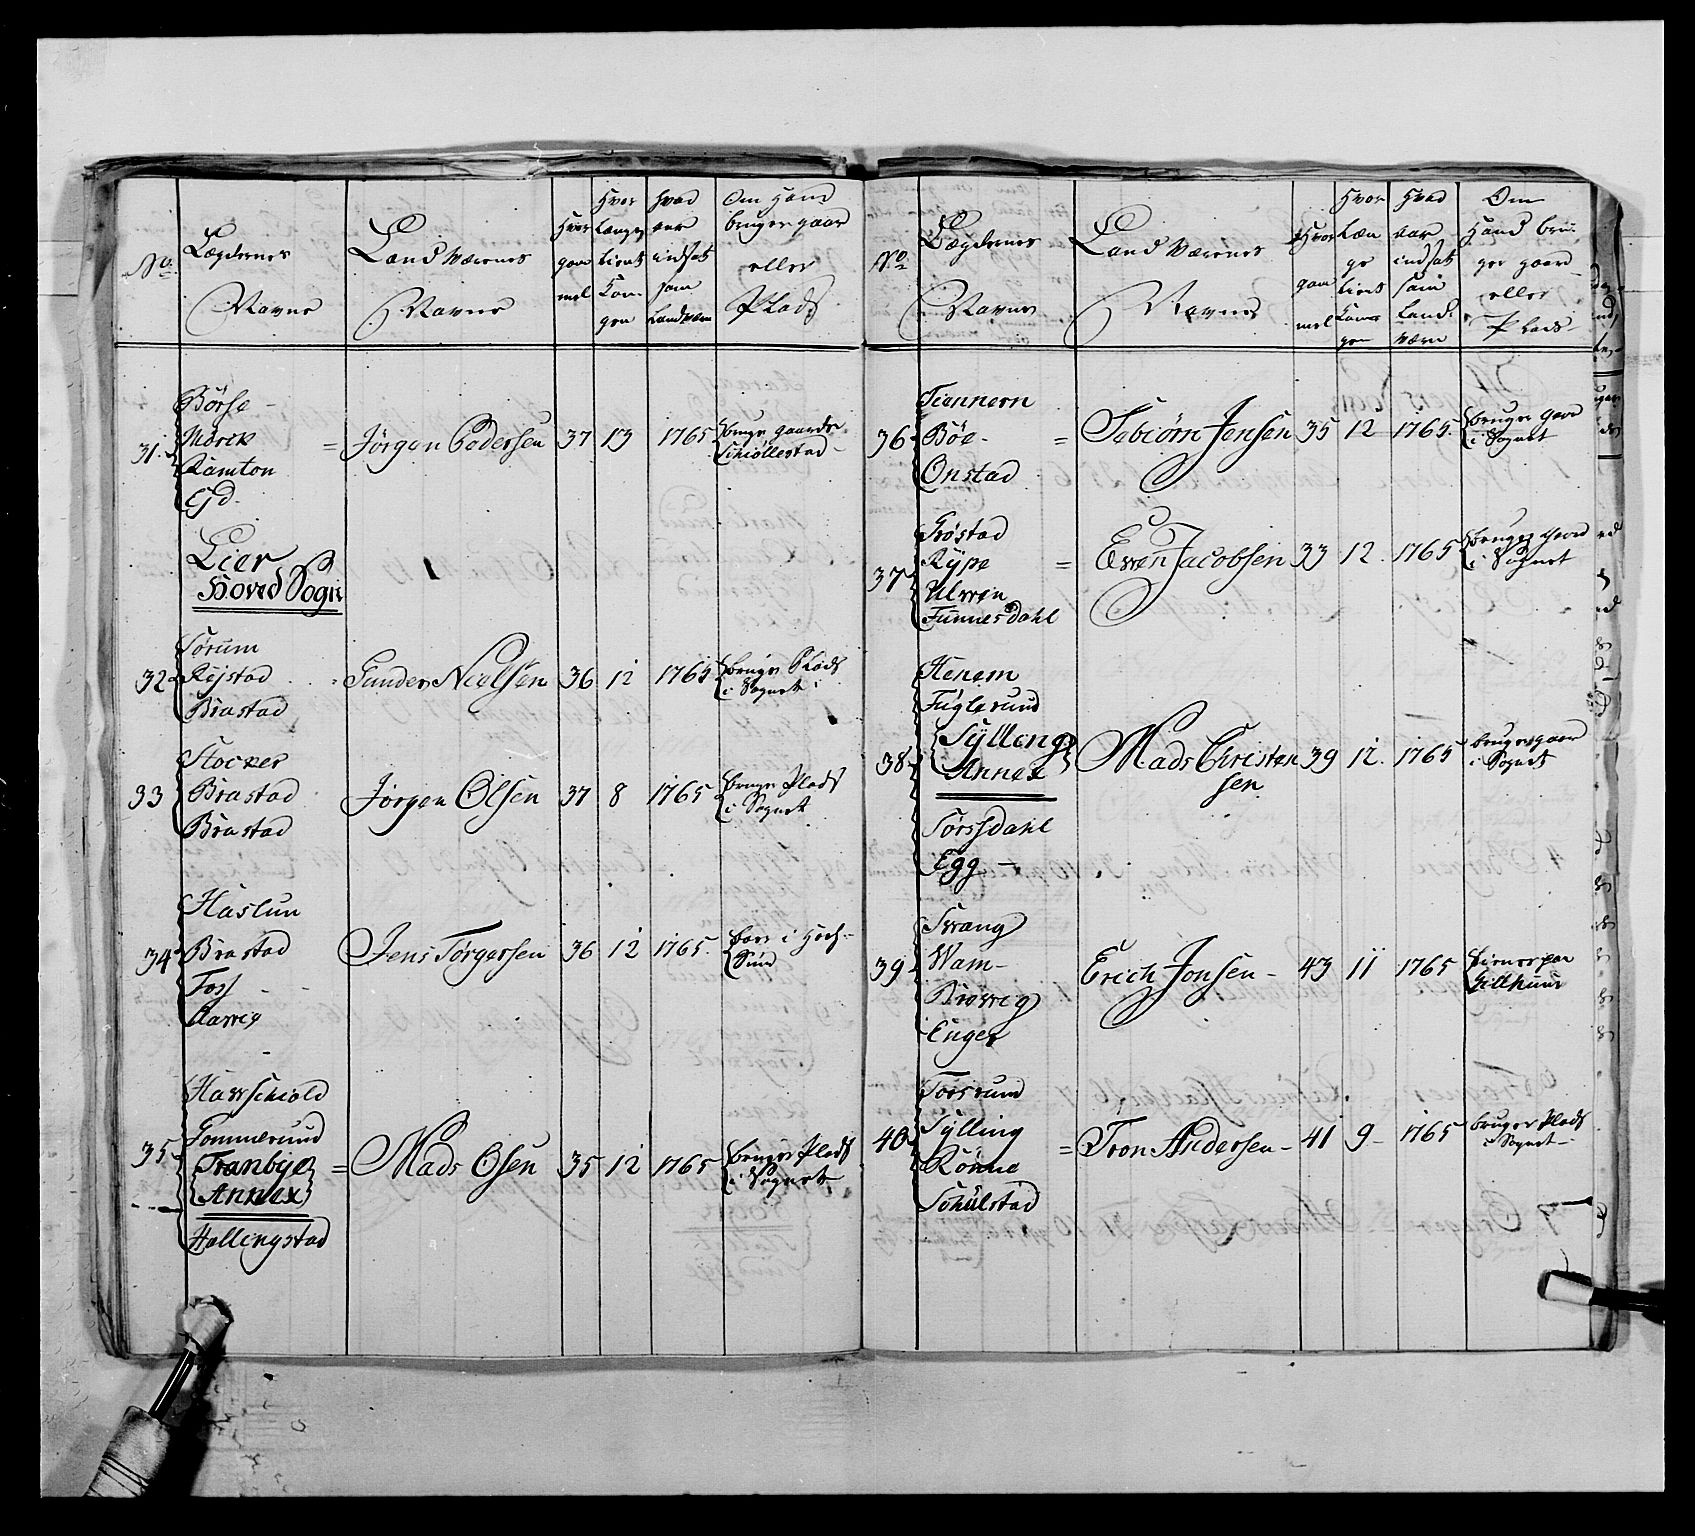 No.
Lægdernes
Navne
Land Værnes
Navne
Hvor
gam
mel
Hvor
længe
tient
Kon-
gen
Hvad
aar
indsat
som
Landværn
Om Hand
bruger gaar
eller
Plads
31
Börse
Mörck
Ramton
Gd.
= Jörgen Pedersen 37 13 1765 bruger gaarde
Schiöllestad
Lier
Hoved Sogn
32
Sørum
Rejstad
Brastad
Gunder Nielsen 36 12 1765 bruger Plads
i Sognet
33
Stocker
Brastad
Brastad
Jørgen Olsen 37 8 1765 bruger Plads
i Sognet
34
Haslum
Brastad
Foss
Jens Törgersen 36 12 1765 boer i
35
Hawschiold
Gommerund
Tranbye
Annex
Hallingstad
= Mads Olsen 35 12 1765 bruger Plads
i Sognet
No.
Lægdernes
Navne
Land Værenes
Navnes
Hvor
gam
mel
Hvor
læn
ge
tient
Kon-
gen
Hvad
aar
indsat
som
Land-
værn
Om
Hand bru-
ger gaard
eller
Plads
36
Tiennern
Böe
Onstad
= Tebiörn Jensen 35 12 1765 bruger
i Sognet
37
Gröstad
Rype
Ulwen
Tunnesdahl
= Ewen Jacobsen 33 12 1765 bruger
i Sognet
38
Henem
Fuglerund
Sylleng
Annex
Torssdahl
Egg
Mads Christen
sen
39 12 1765 bruger gaar
i Sognet
39
Swang
Wam
Browig
Enger
Erich Jonsen 43 11 1765
40
Torsrund
Sylling
Rönne
Schulstad
= Tron Andersen 41 9 1765 bruger Plads
i Sognet